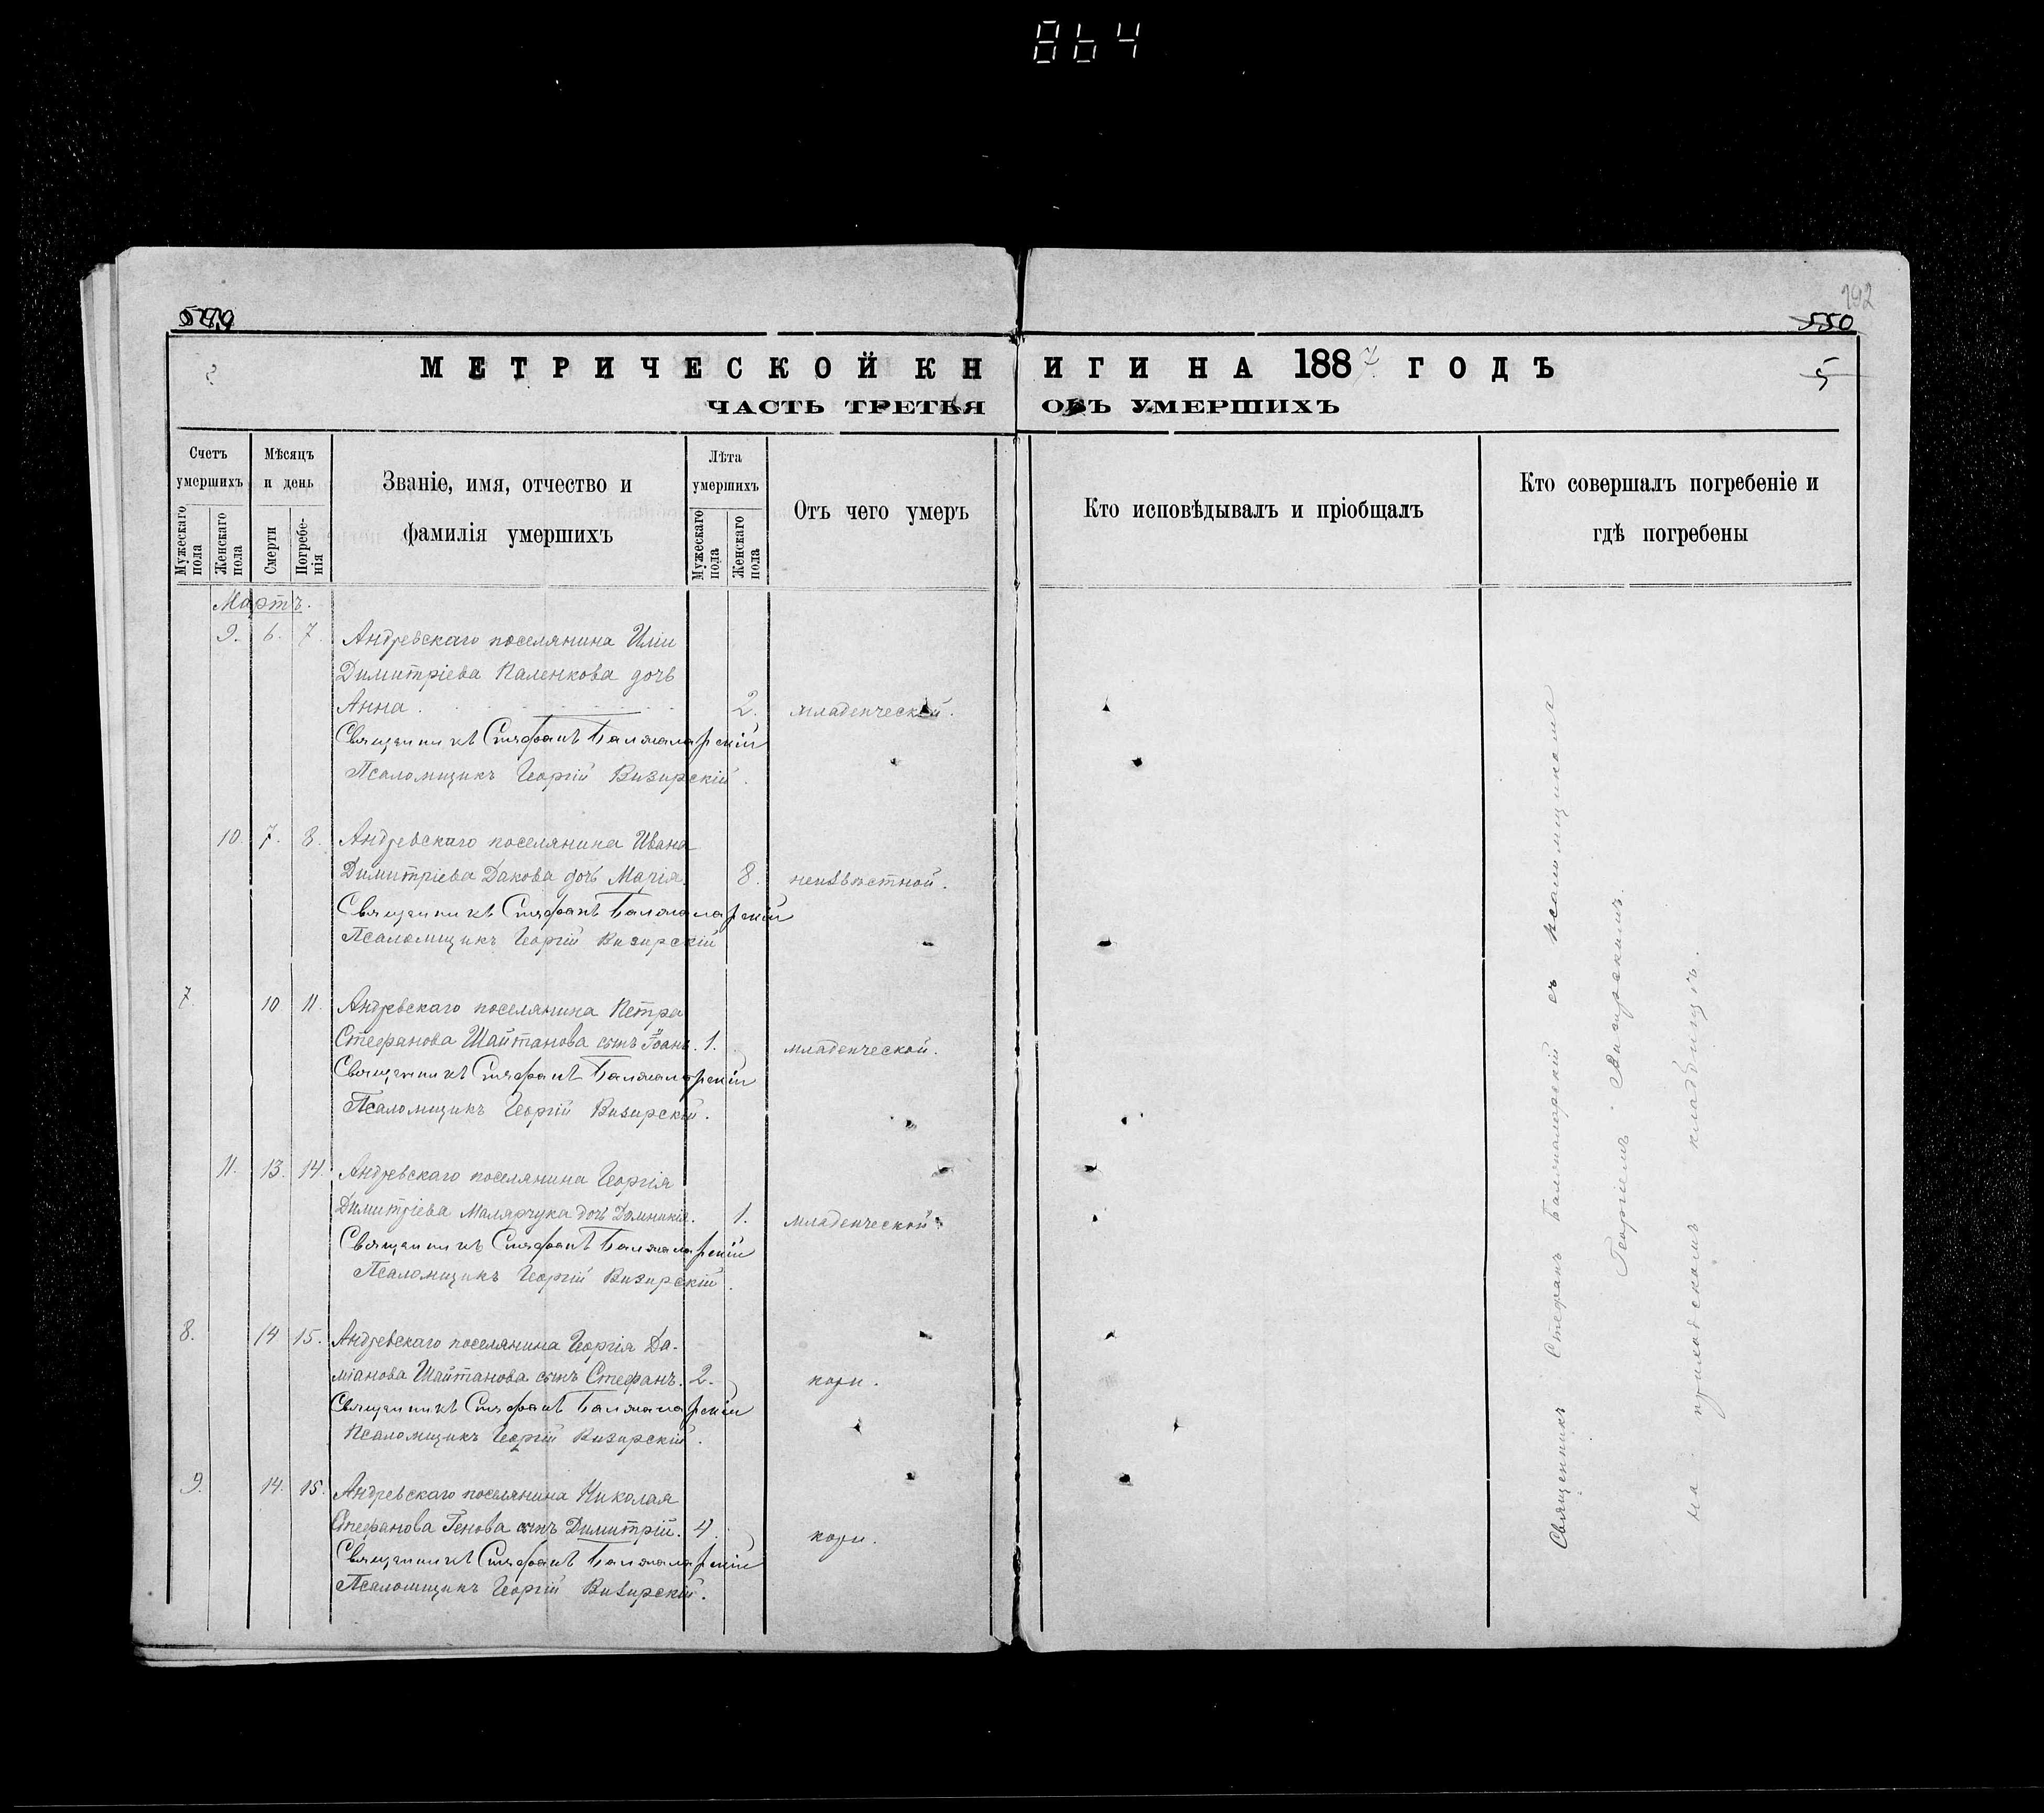 864
192
550
МЕТРИЧЕСКОЙ КНИГИ НА 1887 ГОДЪ
5
ЧАСТЬ ТРЕТЬЯ ОБЪ УМЕРШИХЪ
Счетъ умершихъ
Мужескаго пола
Женскаго пола
Мѣсяцъ и день
Смерти
Погребенія
Званіе, имя, отчество и фамилія умершихъ
Лѣта умершихъ
Мужескаго пола
Женскаго пола
Отъ чего умеръ
Кто исповѣдывалъ и пріобщалъ
Кто совершалъ погребеніе и гдѣ погребены
Мартъ.
9. 6. 7. Андревскаго поселянина Иліи
Димитріева Паленкова дочь
Анна . 2. младенческой.
Священникъ Стефанъ Балжаларскій
Псаломщикъ Георгій Визирскій.
10. 7. 8. Андревскаго поселянина Ивана
Димитріева Дакова дочь Марія. 8. неизвѣстной.
Священникъ Стефанъ Балжаларскій
Псаломщикъ Георгій Визирскій
7. 10. 11. Андревскаго поселянина Петра
Стефанова Шайтанова сынъ Іоанъ. 1. младенческой.
Священникъ Стефанъ Балжаларскій
Псаломщикъ Георгій Визирскій.
11. 13. 14. Андревскаго поселянина Георгія
Димитріева Малярчука дочь Домникія. 1. младенческой.
Священникъ Стефанъ Балжаларскій
Псаломщикъ Георгій Визирскій.
8. 14 15. Андревскаго поселянина Георгія Да-
міанова Шайтанова сынъ Стефанъ. 2. кори.
Священникъ Стефанъ Балжаларскій
Псаломщикъ Георгій Визирскій.
9. 14. 15. Андревскаго поселянина Николая
Стефанова Генова сынъ Димитрій. 4. кори.
Священникъ Стефанъ Балжаларскій
Псаломщикъ Георгій Визирскій.
Священникъ Стефанъ Балжаларскій съ псаломщикомъ
Георгіемъ Визирскимъ.
на приходскомъ кладбищѣ.